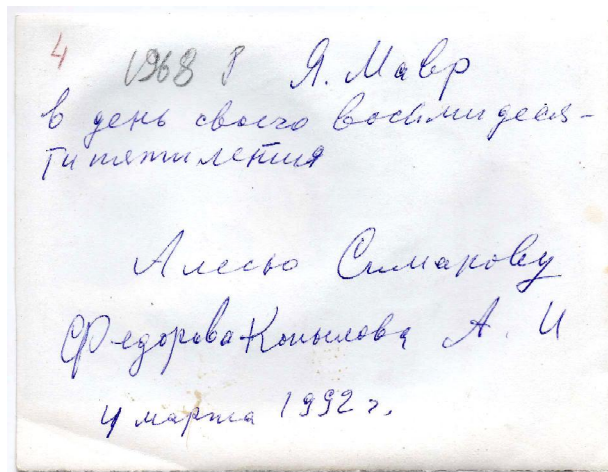 4 1968 г Я. Мавр
в день своего восьмидеся-
типятилетия
Алесю Симакову
Федорова-Копылова А. И
4 марта 1992 г.